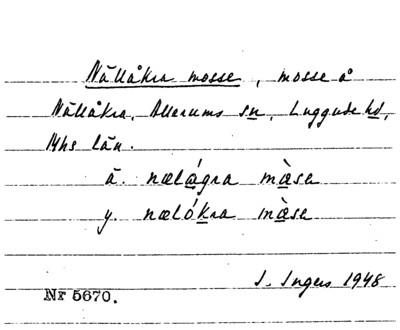 Nällåkra mosse, mosse å
Nällåkra, Allerums sn, Luggude hd,
Mhs län.
ä. nælágra màse
y. nælókra màse
I. Ingers 1948
Nr 5670.